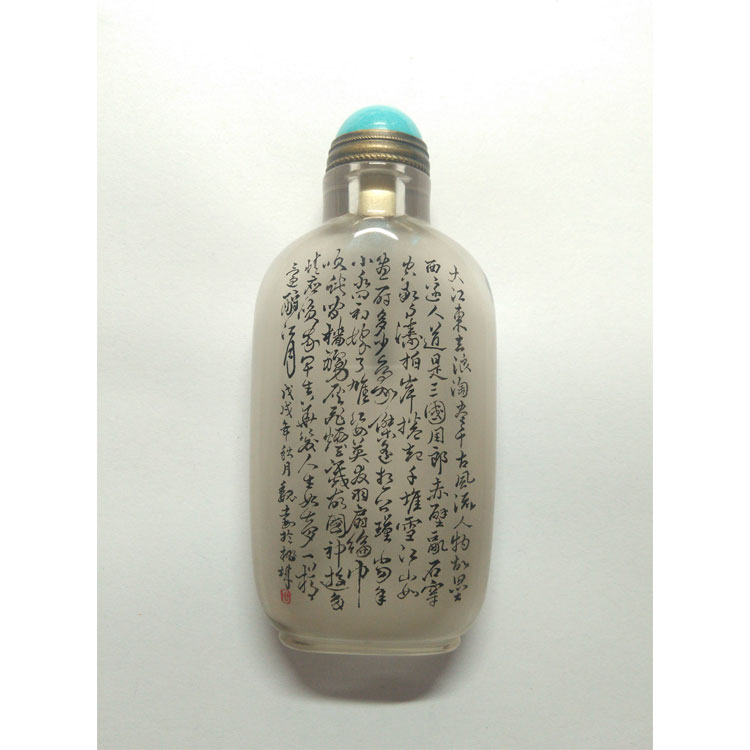 大江東去浪淘盡千古風流人物故壘
西邊人道是三國周郎赤壁亂石穿
空驚濤拍岸捲起千堆雪江山如
畫一時多少豪傑遙想公瑾當年
小喬初嫁了雄姿英發羽扇綸巾
談笑間檣艣灰飛煙滅故國神遊多
情應笑我早生華髮人生如夢一樽
還酹江月 戊戌年秋月